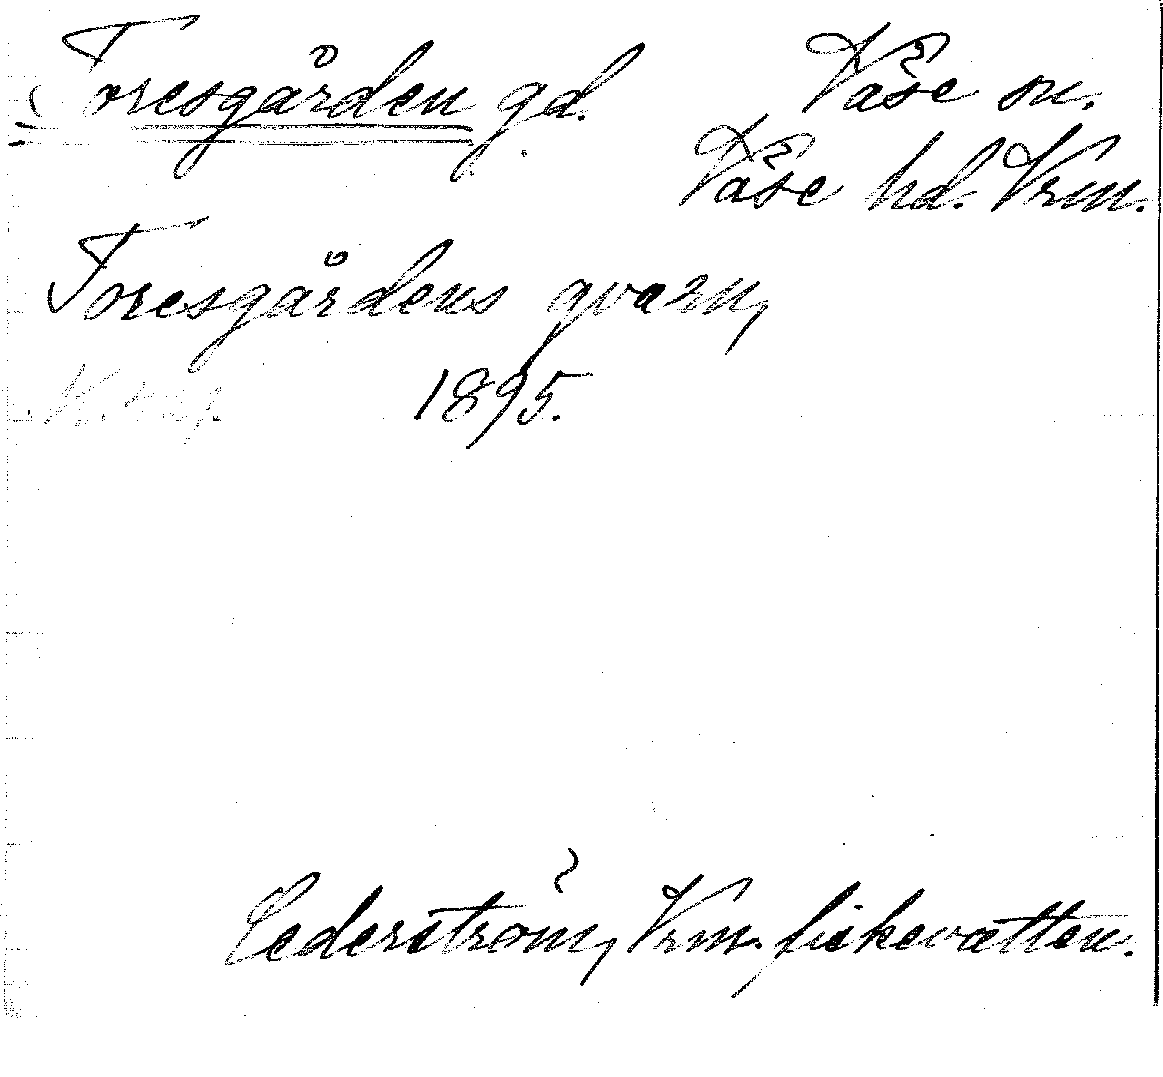 Toresgården gd. Väse sn.
Väse hd. Vrm.
Toresgårdens qvarn,
1895.
Cederström, Vrm. fiskevatten.